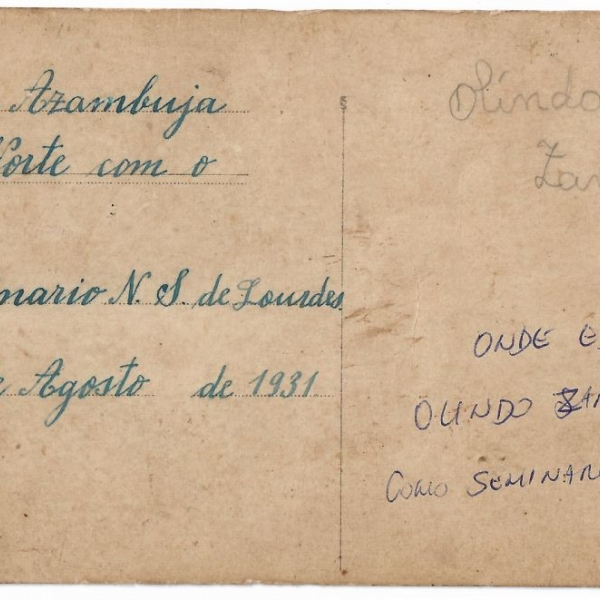 Azambuja
Norte com o
nario N. S. de Lourdes
e Agosto de 1931.
Olindo
Zan
ONDE E
OLINDO ZAN
COMO SEMINAR